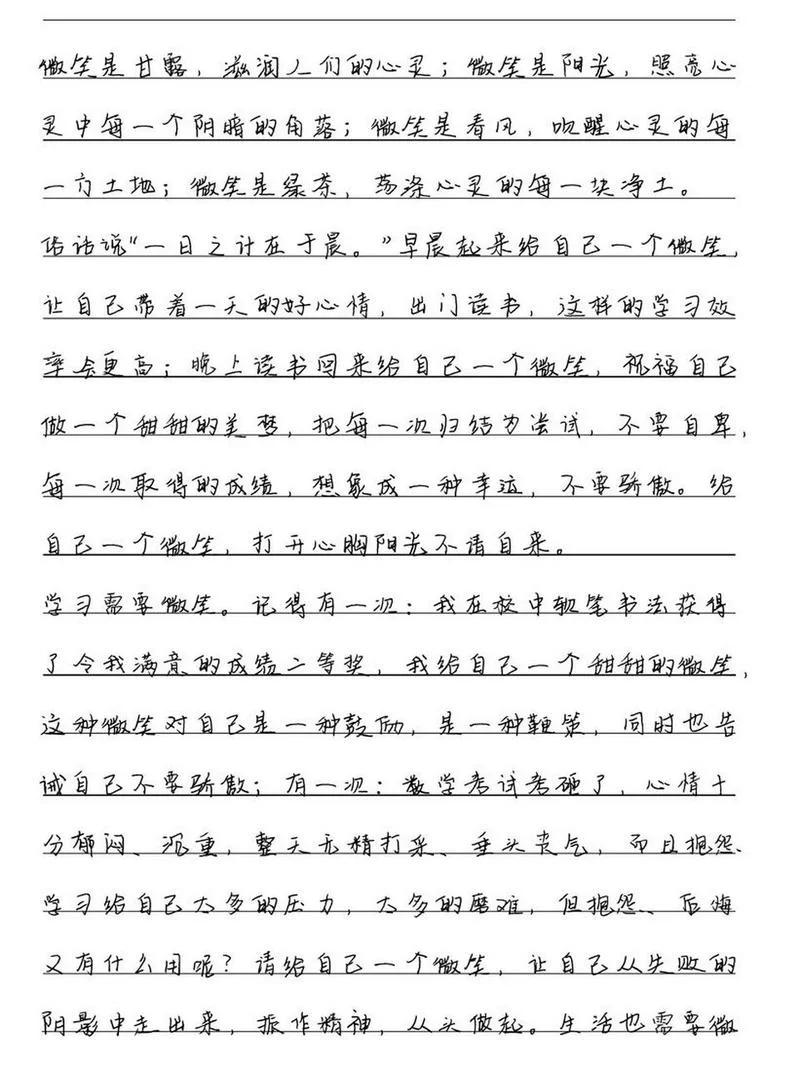 微笑是甘露，滋润人们的心灵；微笑是阳光，照亮心
灵中每一个阴暗的角落；微笑是春风，吹醒心灵的每
一方土地；微笑是绿茶，荡涤心灵的每一块净土。
俗话说“一日之计在于晨。”早晨起来给自己一个微笑，
让自己带着一天的好心情，出门读书，这样的学习效
率会更高；晚上读书回来给自己一个微笑，祝福自己
做一个甜甜的美梦，把每一次归结为尝试，不要自卑，
每一次取得的成绩，想象成一种幸运，不要骄傲。给
自己一个微笑，打开心胸阳光不请自来。
学习需要微笑。记得有一次：我在校中软笔书法获得
了令我满意的成绩二等奖，我给自己一个甜甜的微笑，
这种微笑对自己是一种鼓励，是一种鞭策，同时也告
诫自己不要骄傲；有一次：数学考试考砸了，心情十
分郁闷、沉重，整天无精打采、垂头丧气，而且抱怨、
学习给自己太多的压力，太多的磨难，但抱怨、后悔
又有什么用呢？请给自己一个微笑，让自己从失败的
阴影中走出来，振作精神，从头做起。生活也需要微